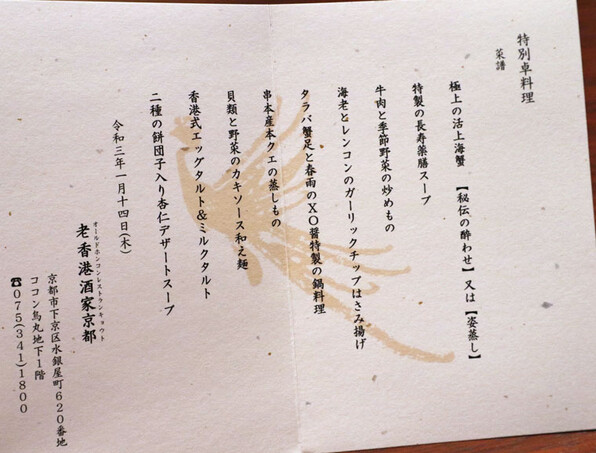 特別卓料理
菜譜
極上の活上海蟹 【秘伝の酔わせ】又は【姿蒸し】
特製の長寿薬膳スープ
牛肉と季節野菜の炒めもの
海老とレンコンのガーリックチップはさみ揚げ
タラバ蟹足と春雨のXO醤特製の鍋料理
串本産本クエの蒸しもの
貝類と野菜のカキソース和え麺
香港式エッグタルト&ミルクタルト
二種の餅団子入り杏仁デザートスープ
令和三年一月十四日(木)
オールドホンコンレストランキョウト
老香港酒家京都
京都市下京区水銀屋町620番地
ココン烏丸地下1階
☎075(341)1800